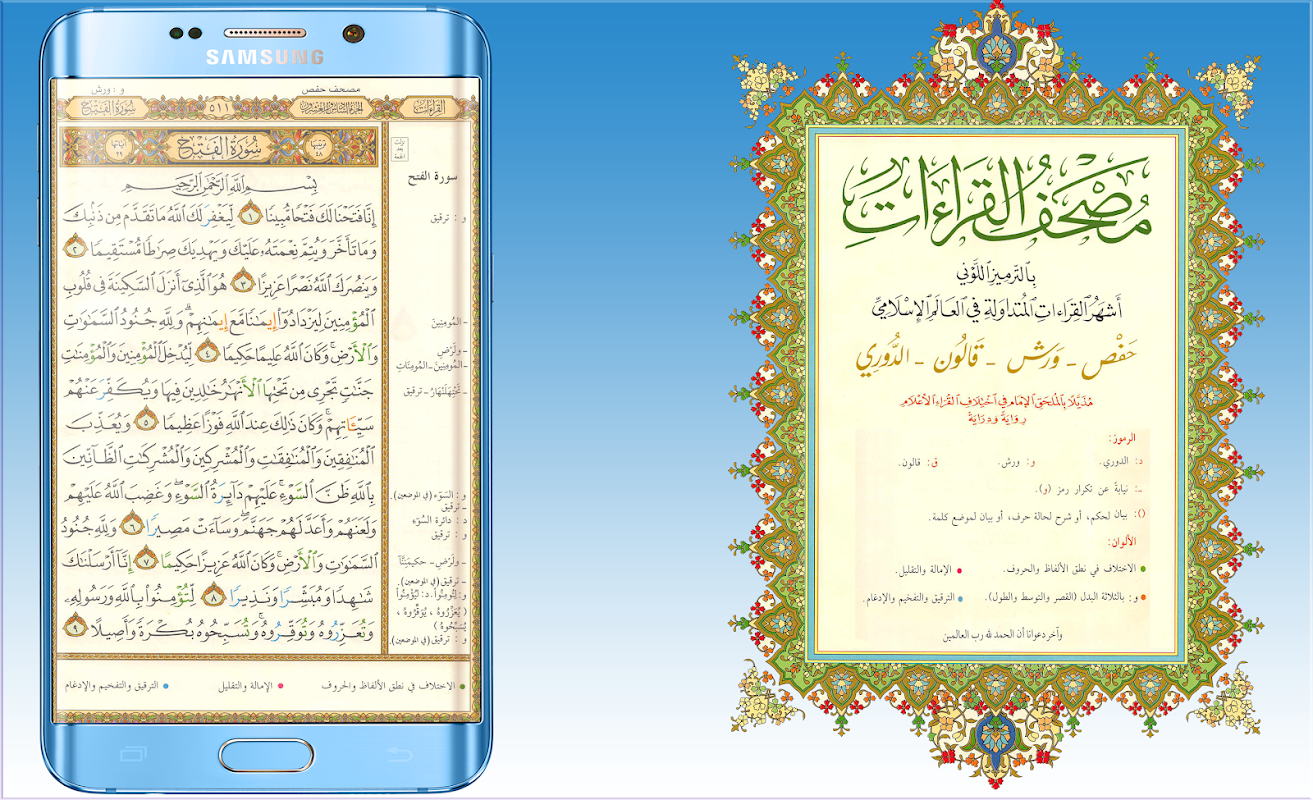 SAMSUNG
مصحف حفص
و : ورش
القراءات
الجزء السادس والعشرون
٥١١
سورة الفتح
سورة الفتح
بِسْمِ اللَّهِ الرَّحْمَٰنِ الرَّحِيمِ
إِنَّا فَتَحْنَا لَكَ فَتْحًا مُّبِينًا ١ لِّيَغْفِرَ لَكَ اللَّهُ مَا تَقَدَّمَ مِن ذَنبِكَ
وَمَا تَأَخَّرَ وَيُتِمَّ نِعْمَتَهُۥ عَلَيْكَ وَيَهْدِيَكَ صِرَٰطًا مُّسْتَقِيمًا ٢
وَيَنصُرَكَ اللَّهُ نَصْرًا عَزِيزًا ٣ هُوَ الَّذِىٓ أَنزَلَ السَّكِينَةَ فِى قُلُوبِ
الْمُؤْمِنِينَ لِيَزْدَادُوٓا۟ إِيمَٰنًا مَّعَ إِيمَٰنِهِمْ ۗ وَلِلَّهِ جُنُودُ السَّمَٰوَٰتِ
وَالْأَرْضِ ۚ وَكَانَ اللَّهُ عَلِيمًا حَكِيمًا ٤ لِّيُدْخِلَ الْمُؤْمِنِينَ وَالْمُؤْمِنَٰتِ
جَنَّٰتٍ تَجْرِى مِن تَحْتِهَا الْأَنْهَٰرُ خَٰلِدِينَ فِيهَا وَيُكَفِّرَ عَنْهُمْ
سَيِّـَٔاتِهِمْ ۚ وَكَانَ ذَٰلِكَ عِندَ اللَّهِ فَوْزًا عَظِيمًا ٥ وَيُعَذِّبَ
الْمُنَٰفِقِينَ وَالْمُنَٰفِقَٰتِ وَالْمُشْرِكِينَ وَالْمُشْرِكَٰتِ الظَّآنِّينَ
بِاللَّهِ ظَنَّ السَّوْءِ ۚ عَلَيْهِمْ دَآئِرَةُ السَّوْءِ ۖ وَغَضِبَ اللَّهُ عَلَيْهِمْ
وَلَعَنَهُمْ وَأَعَدَّ لَهُمْ جَهَنَّمَ ۖ وَسَآءَتْ مَصِيرًا ٦ وَلِلَّهِ جُنُودُ
السَّمَٰوَٰتِ وَالْأَرْضِ ۚ وَكَانَ اللَّهُ عَزِيزًا حَكِيمًا ٧ إِنَّآ أَرْسَلْنَٰكَ
شَٰهِدًا وَمُبَشِّرًا وَنَذِيرًا ٨ لِّتُؤْمِنُوا۟ بِاللَّهِ وَرَسُولِهِۦ
وَتُعَزِّرُوهُ وَتُوَقِّرُوهُ ۚ وَتُسَبِّحُوهُ بُكْرَةً وَأَصِيلًا ٩
سورة الفتح
و : ترقيق
- المُومِنِينَ
- ولَرْضِ
- المُومِنِينَ - المُومِنَاتِ
- ترقيق
و : السَّوْء (في الموضعين).
- ترقيق
د : دائرة السَّوْءِ
و : ترقيق
- ولَرْضِ - حكيمَنِنَّا
- ترقيق (في الموضعين).
و: لِتُومِنُوا. د: لِيُؤْمِنُوا
( يُعَزِّرُوهُ ، يُوَقِّرُوهُ ،
يُسَبِّحُوهُ )
و : ترقيق (في الموضعين).
الاختلاف في نطق الألفاظ والحروف
الإمالة والتقليل
الترقيق والتفخيم والإدغام
مُصْحَفُ القِرَاءَاتِ
بِالتَّرمِيزِ اللَّوْنِي
أَشهَرُ القِرَاءَاتِ المُتَدَاوَلَةِ فِي العَالَمِ الإِسْلَامِيِّ
حَفْص - وَرَش - قَالُون - الدُّورِي
مُذَيَّلًا بِالمُلحَقِ الإِمَام فِي اخْتِلَافِ القُرَّاءِ الأَعْلَام
رِوَايَةً وَدِرَايَةً
الرموز:
د: الدوري. و: ورش. ق: قالون.
-: نيابةً عن تكرار رمز (و).
(): بيان لحكم، أو شرح لحالة حرف، أو بيان لموضع كلمة.
الألوان:
الاختلاف في نطق الألفاظ والحروف. الإمالة والتقليل.
و: بالثلاثة البدل (القصر والتوسط والطول). الترقيق والتفخيم والإدغام.
وآخر دعوانا أن الحمد لله رب العالمين